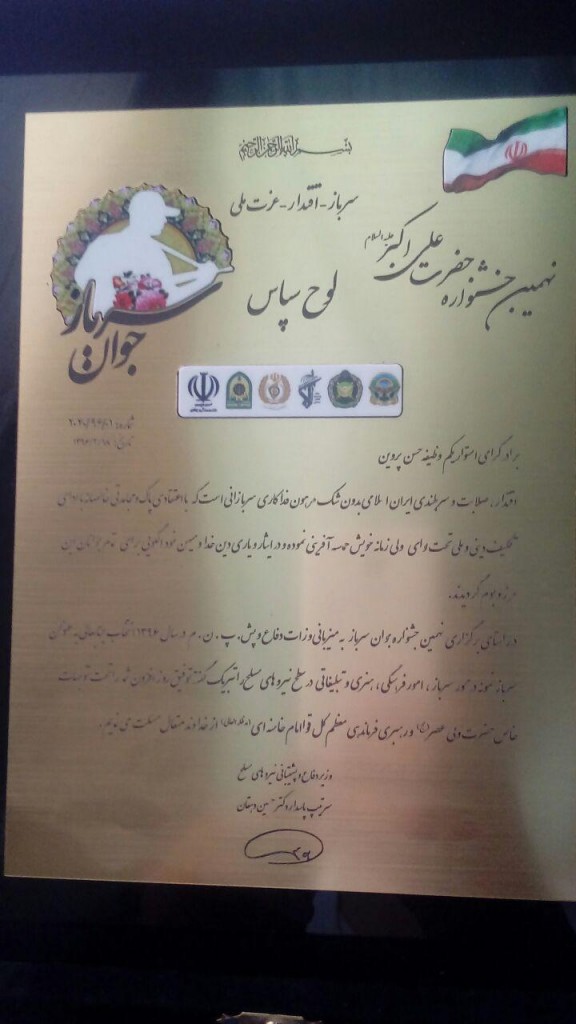 بسم الله الرحمن الرحیم
سرباز - اقتدار - عزت ملی
نهمین جشنواره حضرت علی اکبر علیه السلام
لوح سپاس
سرباز
جوان
شماره:
تاریخ:
برادر گرامی استوار یکم وظیفه حسن پروین
اقتدار، صلابت و سربلندی ایران اسلامی بدون شک مرهون فداکاری سربازانی است که با اعتقادی پاک و مجاهدتی خالصانه، ادای
تکلیف دینی و ملی تحت لوای ولی زمانه خویش حماسه آفرینی نموده و در ایثار و یاری دین خدا و میهن خود الگویی برای تمام جوانان این
مرز و بوم گردیدند.
در راستای برگزاری نهمین جشنواره جوان سرباز به میزبانی وزارت دفاع و پش.پ.ن.م در سال ۱۳۹۶ انتخاب جنابعالی به عنوان
سرباز نمونه در محور سرباز، امور فرهنگی، هنری و تبلیغاتی در سطح نیروهای مسلح را تبریک گفته توفیق روزافزون شما را تحت توجهات
خاص حضرت ولی عصر (عج) و رهبری فرماندهی معظم کل قوا امام خامنه ای (مدظله العالی) از خداوند متعال مسئلت می نمایم.
وزیر دفاع و پشتیبانی نیروهای مسلح
سرتیپ پاسدار دکتر حسین دهقان